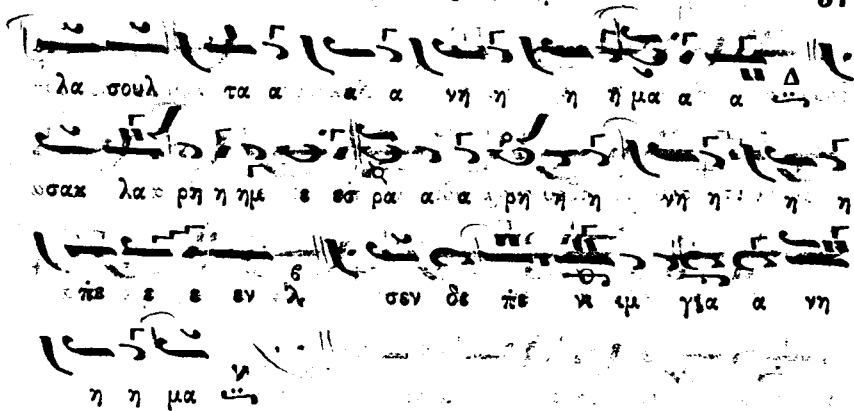 λα σουλ τα α α α νη η η η μα α α Δ
σακ λα ρη η ημ ε εσ ρα α α ρη η η νη η η η
πε ε ε εν λ σεν δε πε νι ιμ για α νη
η η μα